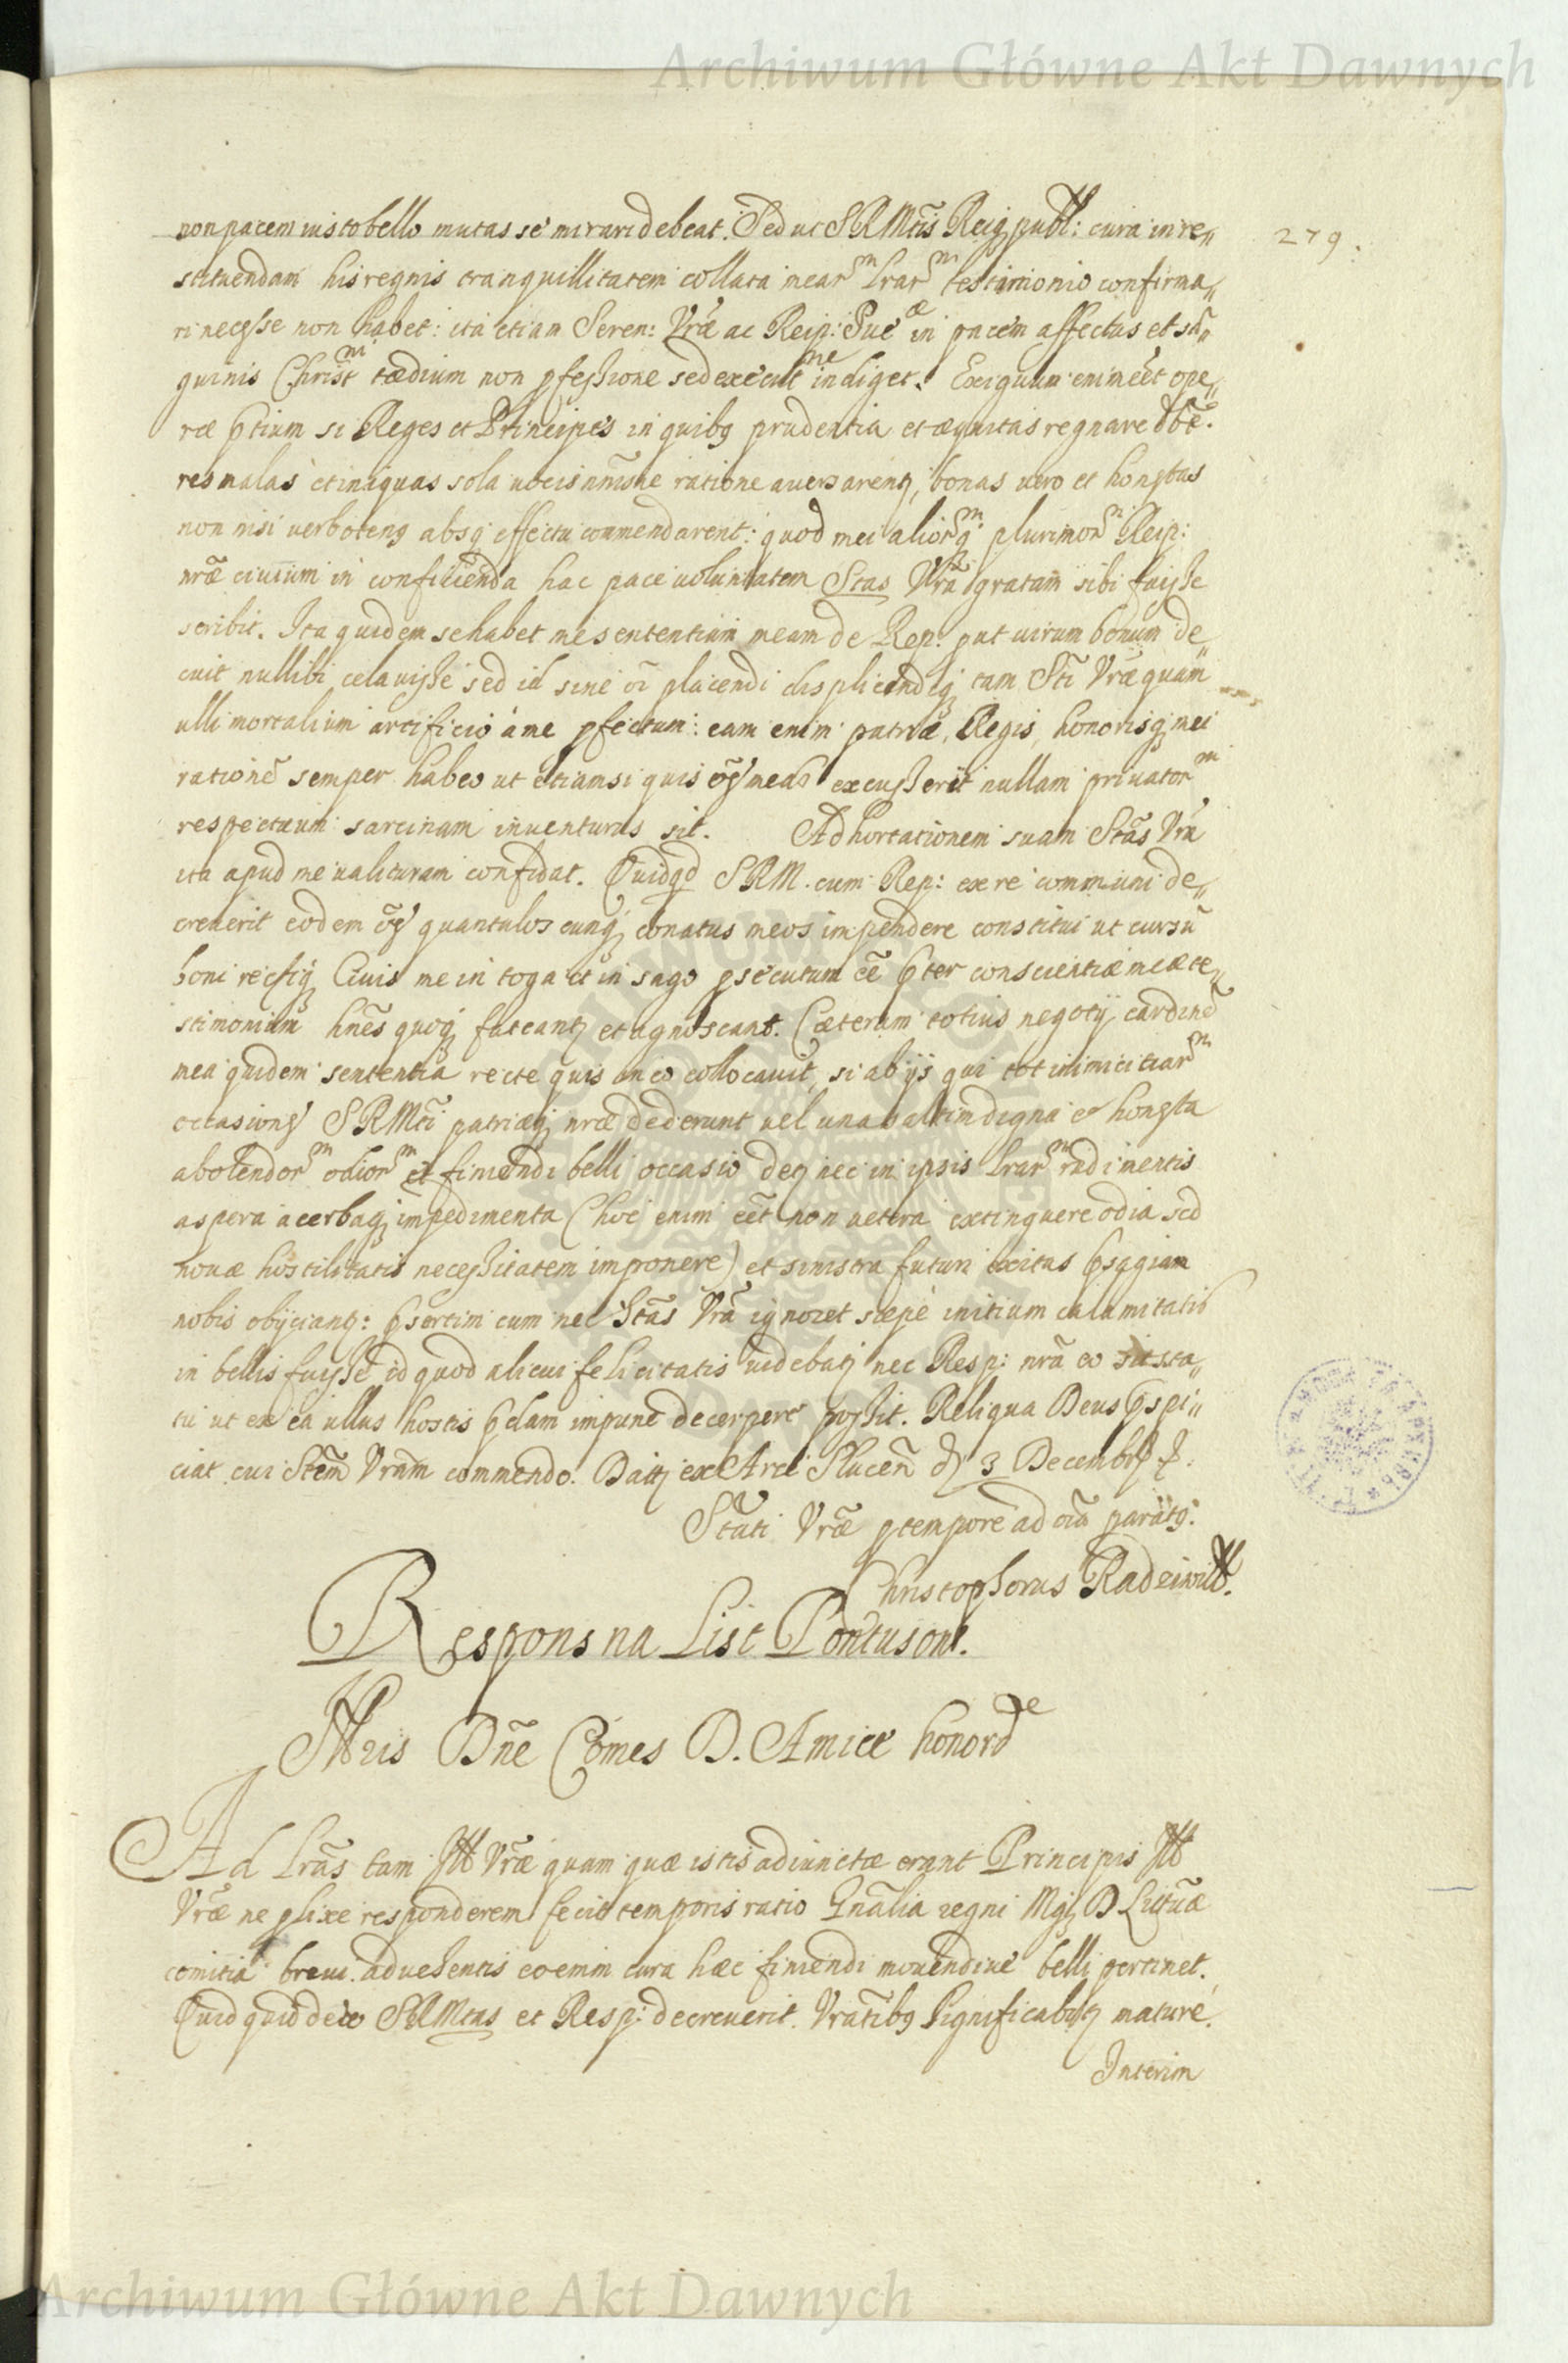 Archiwum Główne Akt Dawnych
non pacem iusto bello mutasse mirari debeat. Sed ut SRMtis Reiq publ: cura in re„
279.
stituendam his regnis tranquillitatem collata mearm Lrarm testimonio confirma„
ri necesse non habet: ita etiam Seren: Vræ ac Reip: Sueæ in pacem affectus et sā„
guinis Christm tædium non pfessione sed executne indiget. Exiguum enim eēt ope„
ræ ptium si Reges et Principes in quibq prudentia et æquitas regnare dbē.
res malas et iniquas sola vocis nmīsne ratione aversarentq, bonas vero et honestas
non nisi verbotenq absq effectu commendarent: quod mei aliorqm plurimorm Reip:
nræ civium in conficienda hac pace voluntatem Stas Vrā gratam sibi fuisse
scribit. Ita quidem se habet me sententiam meam de Rep: put virum bonum de„
cuit nullibi celavisse sed id sine oī placendi displicendiq tam Sti Vræ quam
ulli mortalium artificio a me pfectum: eam enim patriæ, Regis, honorisq mei
rationē semper habeo ut etiamsi quis oēs meas excusserit nullam privatorm
respectuum sarcinam inventurus sit. Adhortationem suam Stās Vrā
ita apud me valituram confidat. Quidqd SRM. cum Rep: ex re communi de„
creverit eodem oēs quantuloscunq conatus meos impendere constitui ut cursū
boni rectiq Civis me in toga et in sago psecutum eē pter conscientiæ meæ te„
stimonium hnēs quoq fateantq et agnoscant. Cæterum totius negotij cardinē
mea quidem sententia recte quis in eo collocavit, si ab ijs qui tot inimicitiarm
occasiones SRMti patriæq nræ dederunt vel una saltim digna et honesta
abolendorm odiorm et finiendi belli occasio detq nec in ipsis Lrarm rudimentis
aspera acerbaq impedimenta (hoc enim eēt non vetera extinguere odia sed
novæ hostilitatis necessitatem imponere) et sinistra futuri exitus psagiam
nobis obijciantq: psertim cum nec Stās Vrā ignoret sæpe initium calamitatis
in bellis fuisse id quod alicui felicitatis videbatq nec Resp: nrā eo sit sta„
tu ut ex ea ullus hostis pdam impune decerpere possit. Reliqua Deus pspi„
ciat cui Stēm Vram commendo. Datq ex Arce Slucen̄ d 3 Decembr
Stati Vræ ptempore ad oīa paratq.
Christophorus Radziwill.
Respons na List Pontusone.
Illris Dn̄e Comes D. Amice honorde
Ad Lrās tam Ill Vræ quam quæ istis adiunctæ erant Principis Ill
Vræ ne plixe responderem fecit temporis ratio Gnālia regni Mgq D Lituæ
comitia brevi advehentis eo enim cura hæc finiendi movendive belli pertinet.
Quidquid de eo SRMtas et Resp: decreverit. Vratībq significabitq mature.
Interim
Archiwum Główne Akt Dawnych